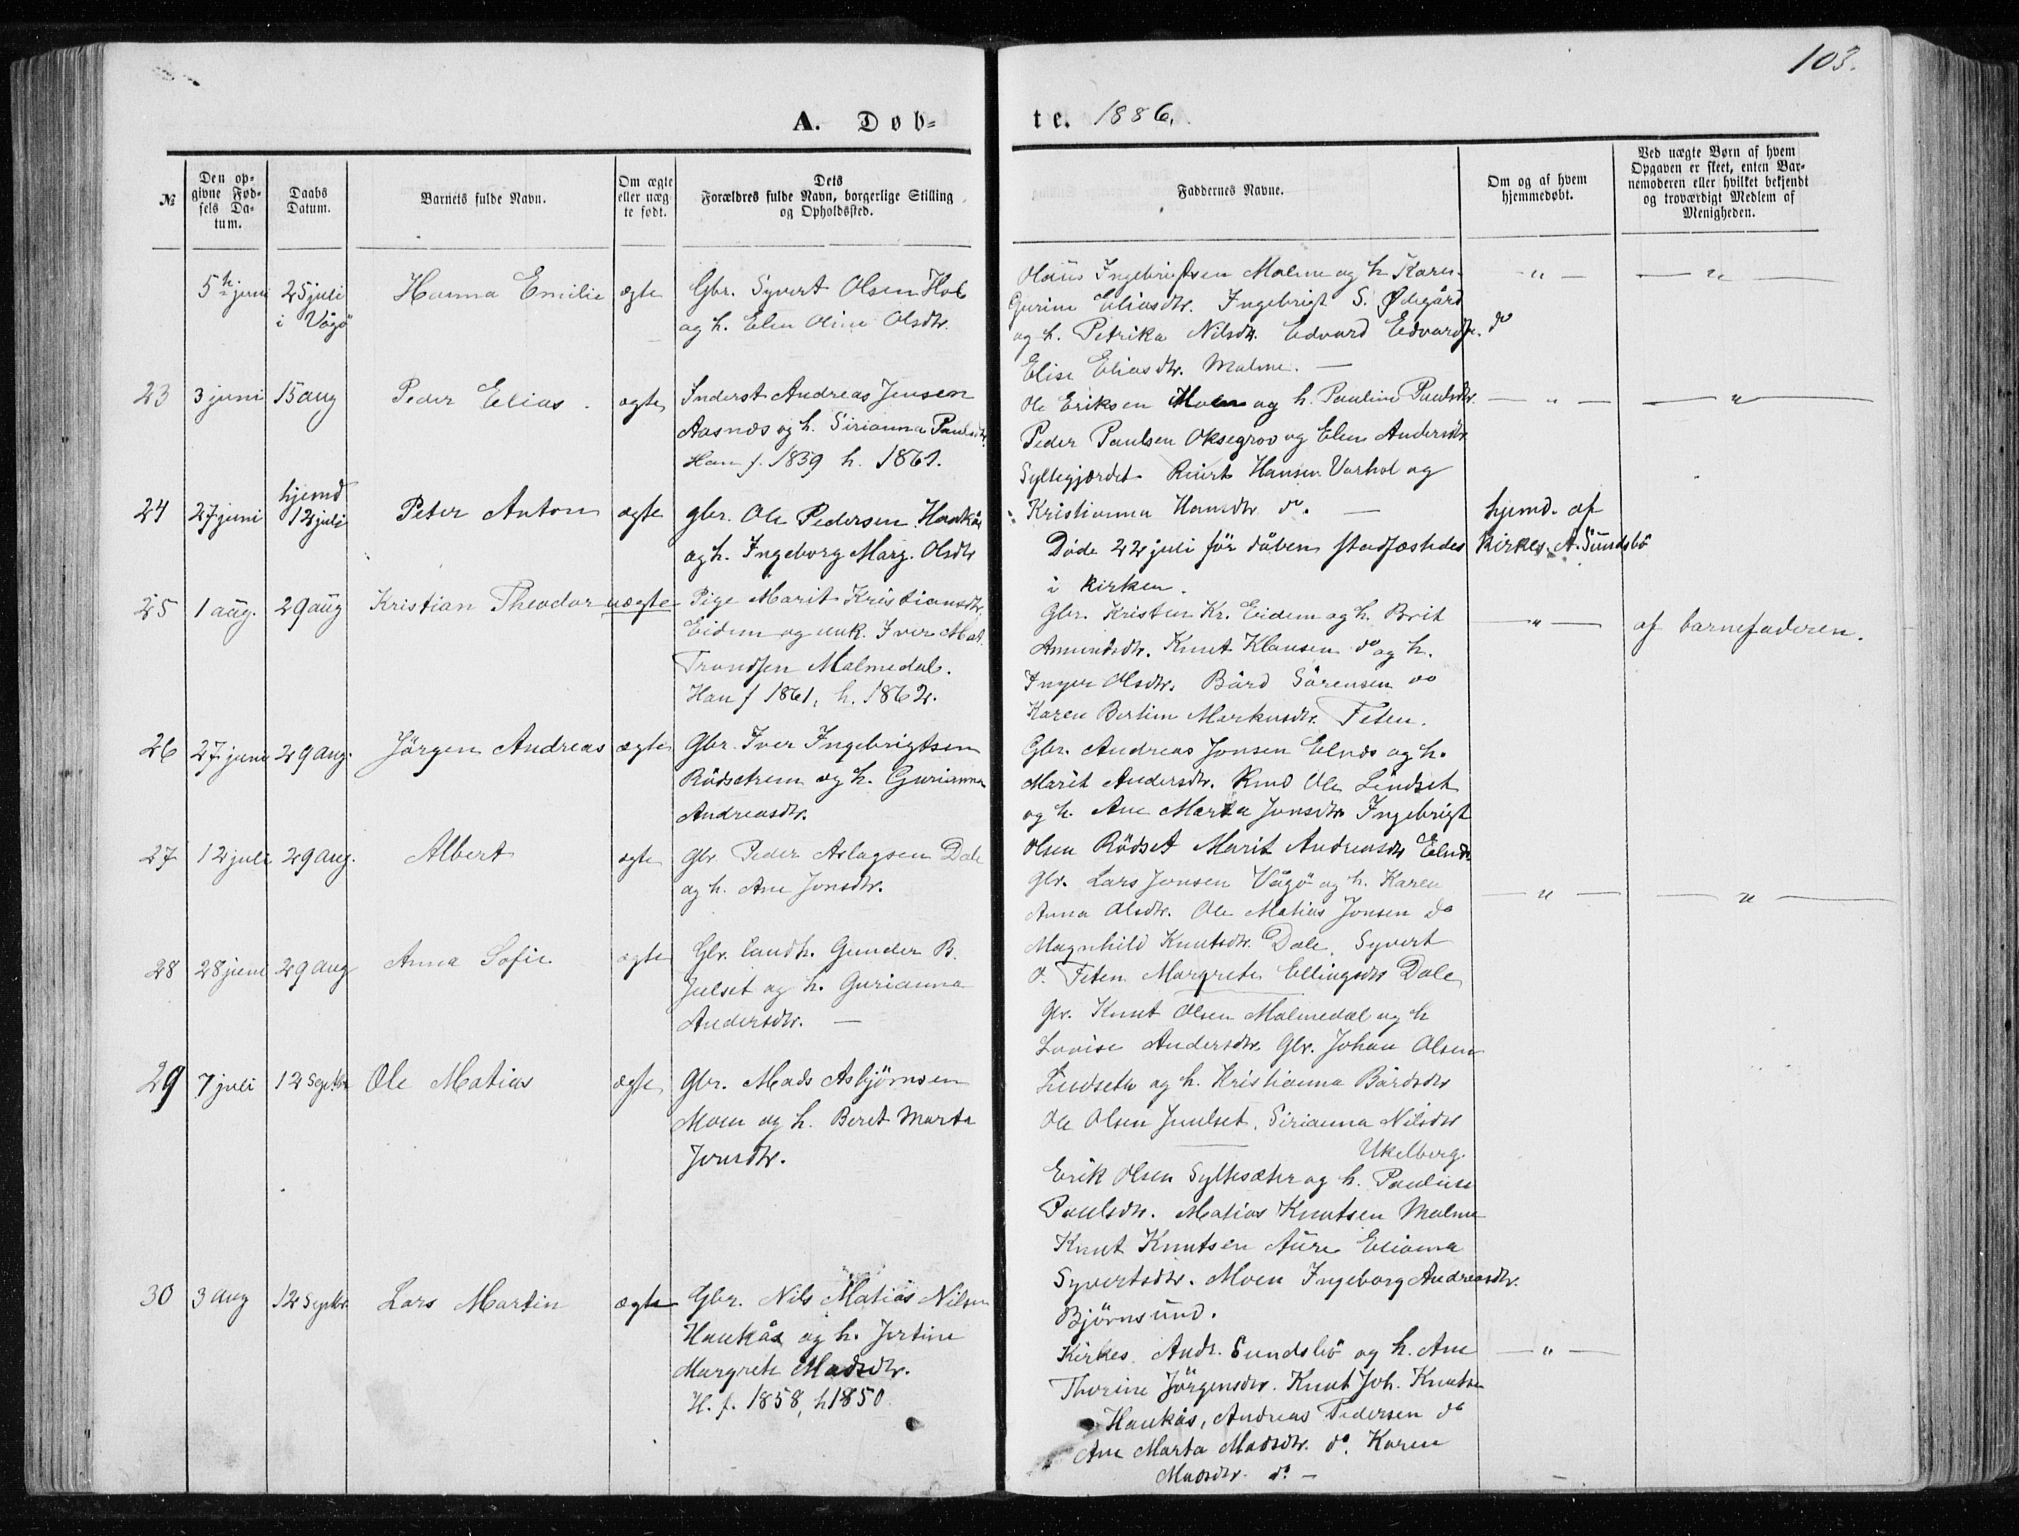 103.
A. Døb=
te. 1886.
№
Den op-
givne Fød-
sels Da-
tum.
Daabs
Datum.
Barnets fulde Navn.
Om ægte
eller uæg
te født.
Dets
Forældres fulde Navn, borgerlige Stilling
og Opholdssted.
Faddernes Navne.
Om og af hvem
hjemmedøbt.
Ved uægte Børn af hvem
Opgaven er skeet, enten Bar-
nemoderen eller hvilket bekjendt
og troværdigt Medlem af
Menigheden.
5te juni
25 juli
i Vågö
Hanna Emilie
ægte
Gbr. Syvert Olsen Hol
og h. Elen Oline Olsdtr.
Olaus Ingebrigtsen Malme og h. Karen
Gurine Eliasdtr. Ingebrigt S. Ødegård
og h. Petrika Nilsdtr. Edvard Edvardsn. do
Elise Eliasdtr. Malme. —
— " —
— " —
23
3 juni
15 aug
Peder Elias
ægte
Inderst Andreas Jensen
Aasnæs og h. Sirianna Paulsdtr.
Han f. 1839 h. 1861.
Ole Eriksen Holen og h. Pauline Paulsdtr.
Peder Paulsen Oksegrov og Elen Andersdtr
Syltegjærdet Knut Hansen Varhol og
Kristianna Hansdtr do. —
— " —
— " —
24
27 juni
hjemd
12 juli
Peter Anton
ægte
gbr. Ole Pedersen Haukås
og h. Ingeborg Marg. Olsdtr
Døde 22 juli før dåben stadfæstedes
i kirken.
hjemd. af
Kirkes. A. Sundsbö
25
1 aug.
29 aug
Kristian Theodor
uægte
Pige Marit Kristiansdtr.
Eidem og unk. Iver Mat.
Trondsen Malmedal.
Han f 1861, h. 1862.
Gbr. Kristen Kr. Eidem og h. Brit
Amundsdtr. Knut Klausen do og h.
Inger Olsdtr. Bård Sörensen do
Karen Bertine Markusdtr. Feten.
— " —
af barnefaderen.
26
27 juni
29 aug.
Jörgen Andreas
ægte
Gbr. Iver Ingebrigtsen
Rödsetrem og h. Gurianna
Andreasdtr.
Gbr. Andreas Jonsen Elnæs og h.
Marit Andersdtr. Knud Ole Lindset
og h. Ane Marta Jonsdtr Ingebrigt
Olsen Rödset Marit Andreasdtr Elnæs
27
12 juli
29 aug.
Albert
ægte
Gbr Peder Aslagsen Dale
og h. Ane Jonsdtr.
Gbr. Lars Jonsen Vågö og h. Karen
Anna Olsdtr. Ole Matias Jonsen do
Magnhild Knutsdtr. Dale. Syvert
O. Feten Margrete Ellingsdtr Dale
— " —
— " —
28
28 juni
29 aug
Anna Sofie
ægte
Gbr. Landh. Gunder B.
Julset og h. Gurianna
Andersdtr. —
Gbr. Knut Olsen Malmedal og h
Lovise Andersdtr. Gbr. Johan Olsen
Lindseth og h. Kristianna Bårdsdtr
Ole Olsen Juulset. Sirianna Nilsdtr
Ukelberg.
29
7 juli
12 Septbr
Ole Matias
ægte
Gbr. Mads Asbjørnsen
Moen og h. Beret Marta
Jonsdtr.
Erik Olsen Syltesæter og h. Pauline
Paulsdtr. Matias Knutsen Malme
Knut Knutsen Aure Elianna
Syvertsdtr. Moen Ingeborg Andreasdtr.
Bjørnsund.
30
3 aug
12 Septbr.
Lars Martin
ægte
Gbr. Nils Matias Nilsen
Haukås og h. Jertine
Margrete Madsdtr.
H. f. 1858, h 1850
Kirkes. Andr. Sundsbö og h. Ane
Thorine Jörgensdtr. Knut Joh. Knutsen
Haukås, Andreas Pedersen do
Ane Marta Madsdtr. do. Karen
Madsdtr. do. —
— " —